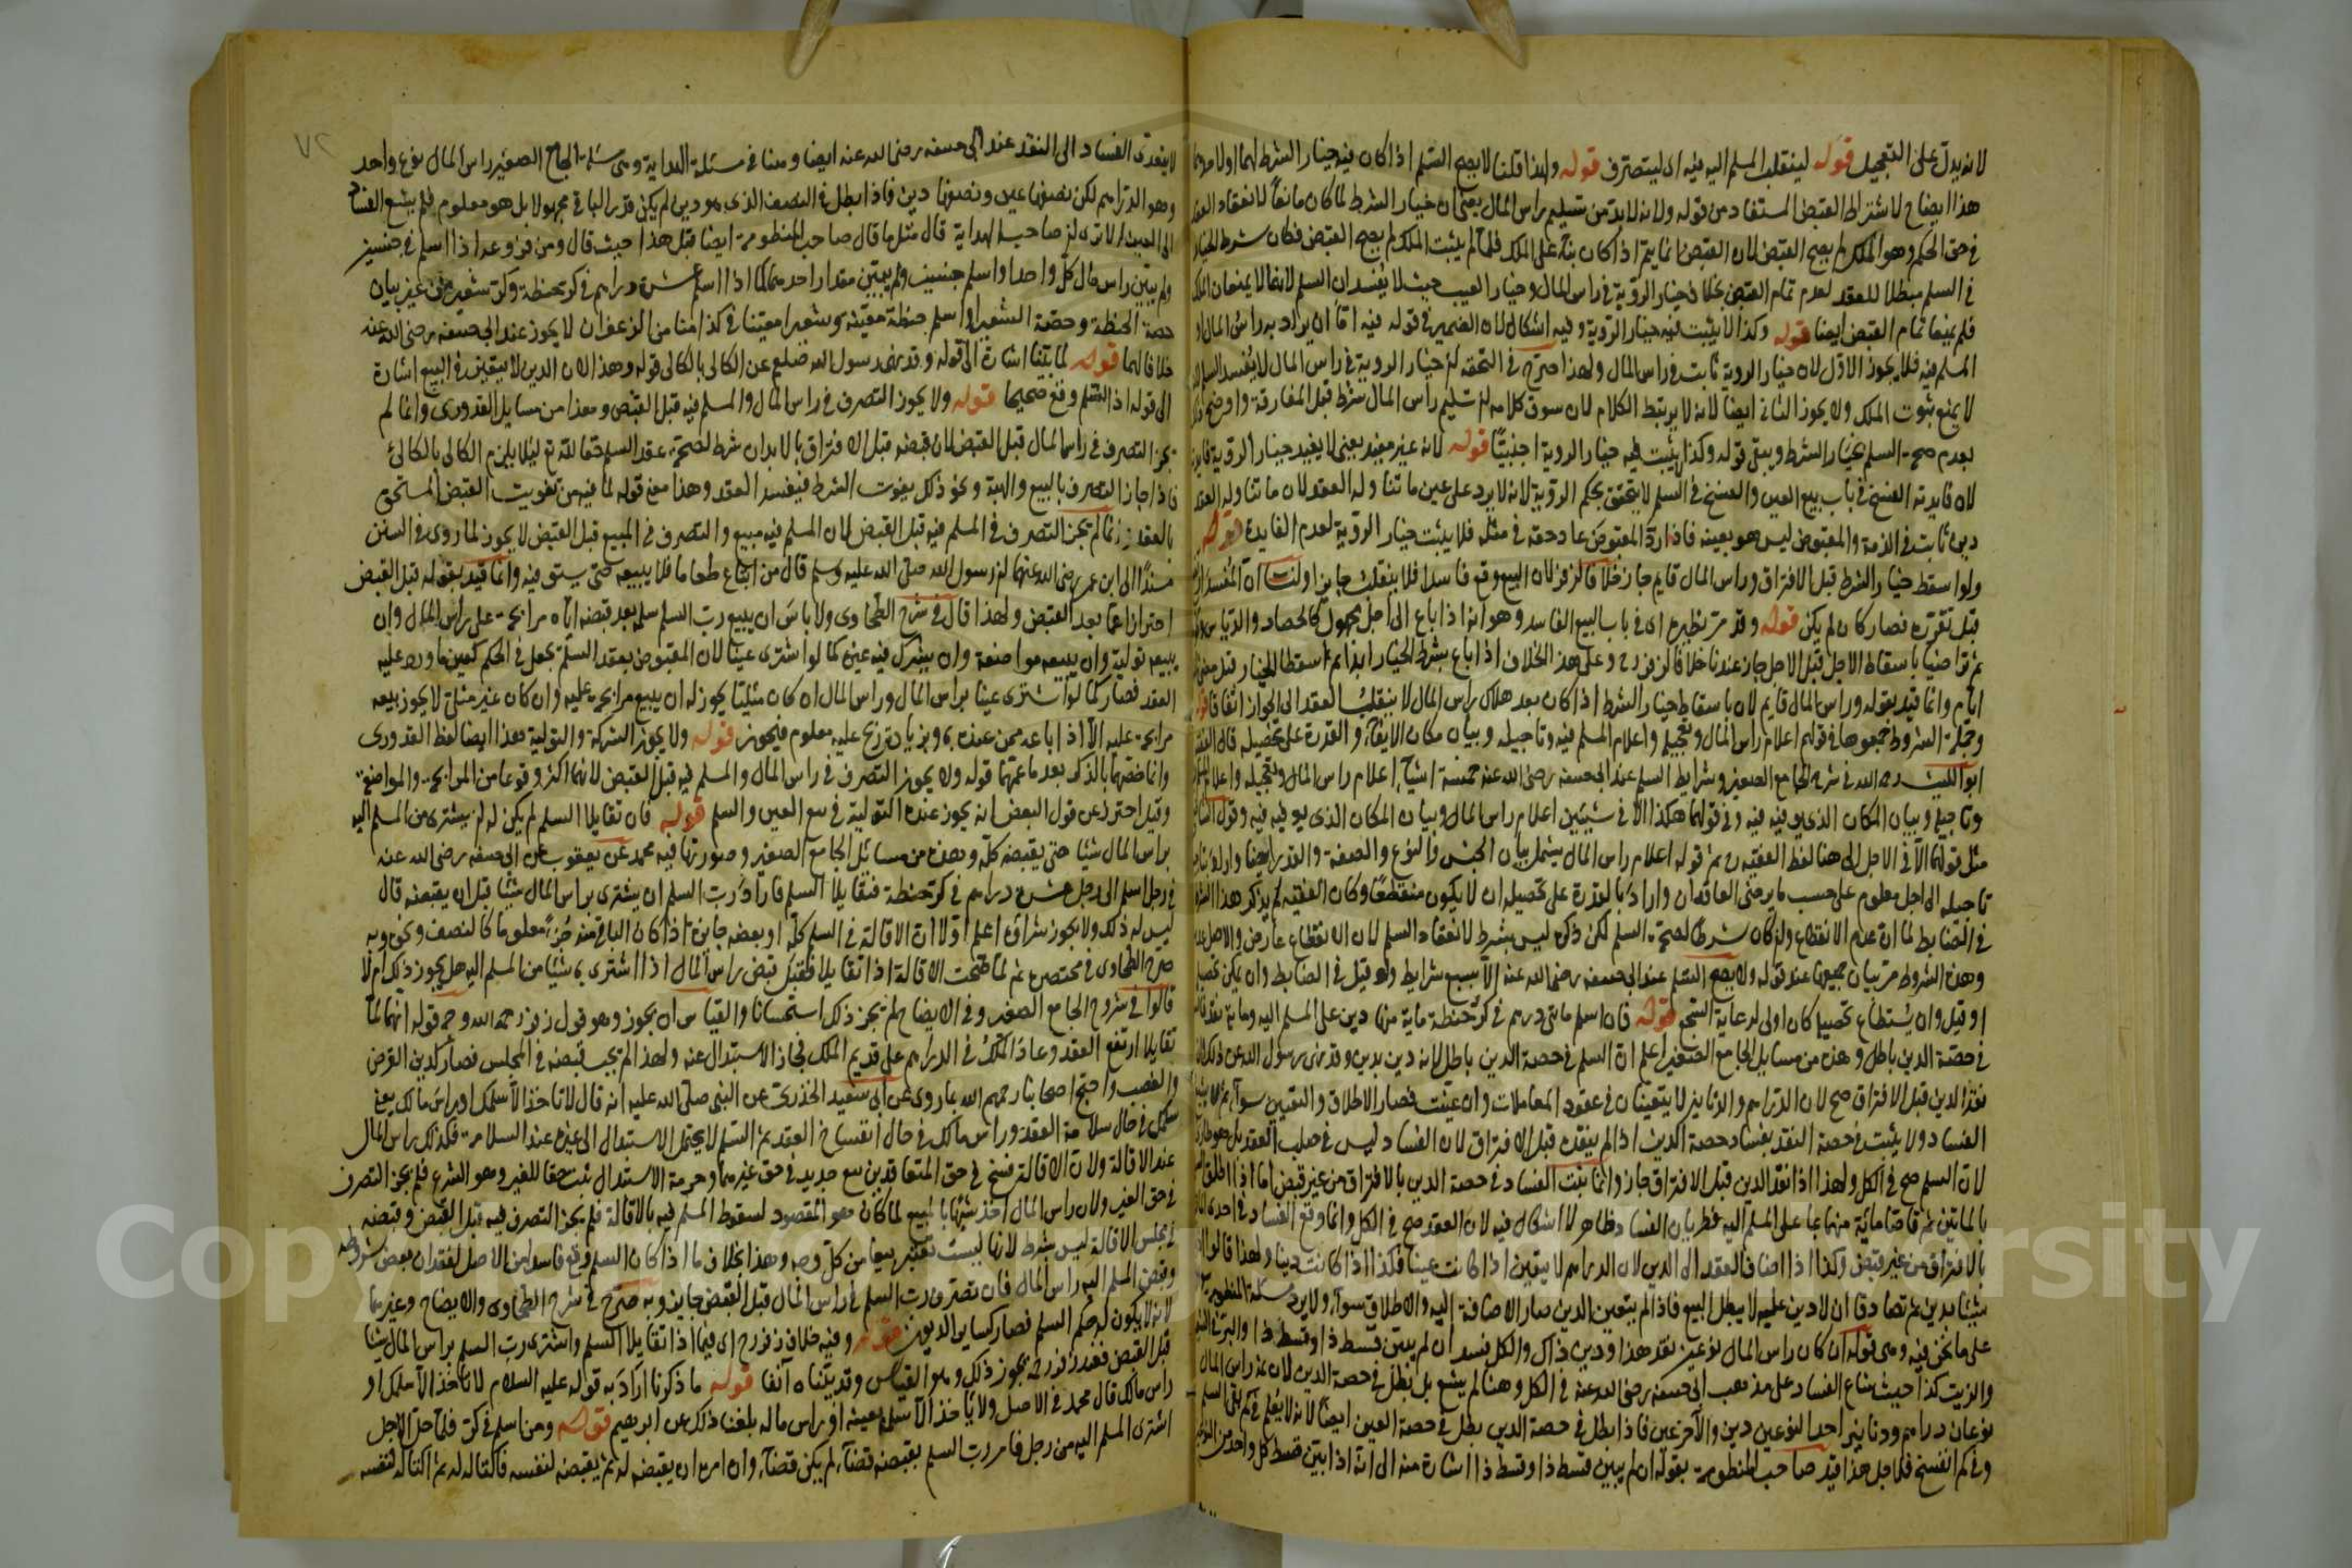 لانه يدل على التعجيل قوله لينقلب المسلم اليه فيه اى ليتصرف قوله ولهذا قلنا لا يصح السلم اذا كان فيه خيار الشرط لهما او لاحدهما
هذا ايضاح لاشتراط القبض المستفاد من قوله ولانه لابد من تسليم راس المال يعنى ان خيار الشرط لما كان مانعا لانعقاد العقد
فى حق الحكم وهو الملك لم يصح القبض لان القبض انما يتم اذا كان بناء على الملك فلما لم يثبت الملك لم يصح القبض فكان شرط الخيار
فى السلم مبطلا للعقد لعدم تمام القبض بخلاف خيار الرؤية فى راس المال وخيار العيب حيث لا يفسدان السلم لانهما لا يمنعان الملك
فلم يمنعا تمام القبض ايضا قوله وكذا لا يثبت فيه خيار الرؤية وفيه اشكال لان الضمير فى قوله فيه اما ان يراد به راس المال او
المسلم فيه فلا يجوز الاول لان خيار الروية ثابت فى راس المال ولهذا صرح فى التحفة ان خيار الروية فى راس المال لا يفسد السلم لانه
لا يمنع ثبوت الملك ولا يجوز الثانى ايضا لانه لا يرتبط الكلام لان سوق كلامه ان تسليم راس المال شرط قبل المفارقة واوضح ذلك
بعدم صحة السلم بخيار الشرط ويبقى قوله وكذا لا يثبت فيه خيار الروية اجنبيا قوله لانه غير مفيد يعنى لا يفيد خيار الرؤية فايدة
لان فايدته الفسخ فى باب بيع العين والفسخ فى السلم لا يتحقق بحكم الرؤية لانه لا يرد على عين ما تناوله العقد لان ما تناوله العقد
دين ثابت فى الذمة والمقبوض ليس هو بعينه فاذا رد المقبوض عاد حقه فى مثله فلا يثبت خيار الرؤية لعدم الفايدة قوله
ولو اسقط خيار الشرط قبل الافتراق وراس المال قايم جاز خلافا لزفر لان البيع وقع فاسدا فلا ينقلب جايزا ولنا ان المفسد ارتفع
قبل تقرره فصار كان لم يكن قوله وقد مر نظيره اى فى باب البيع الفاسد وهو انه اذا باع الى اجل مجهول كالحصاد والدياس
ثم تراضيا باسقاط الاجل قبل الاجل جاز عندنا خلافا لزفر رح وعلى هذا الخلاف اذا باع بشرط الخيار ابدا ثم اسقطا الخيار قبل مضى
ايام وانما قيد بقوله وراس المال قايم لان باسقاط خيار الشرط اذا كان بعد هلاك راس المال لا ينقلب العقد الى الجواز اتفاقا قوله
وجملة الشروط جمعوها فى قولهم اعلام راس المال وتعجيله واعلام المسلم فيه وتاجيله وبيان مكان الايفاء والقدرة على تحصيله قال الفقيه
ابو الليث رحمه الله فى شرح الجامع الصغير وشرايط السلم عند ابى حنيفة رضى الله عنه خمسة اشياء اعلام راس المال وتعجيله واعلام المسلم فيه
وتاجيله وبيان المكان الذى يوفيه فيه وفى قولهما هكذا الا فى شيئين اعلام راس المال وبيان المكان الذى يوفيه فيه وقول الشافعى
مثل قولهما الا فى الاجل الى هنا لفظ الفقيه رح ثم قوله اعلام راس المال يشمل بيان الجنس والنوع والصفة والقدر ايضا واراد
تاجيله الى اجل معلوم على حسب ما يرضى العاقدان واراد بالقدرة على تحصيله ان لا يكون منقطعا وكان الفقيه لم يذكر هذا الشرط
فى الضابط لما ان عدم الانقطاع وان كان شرطا لصحة السلم لكن ذكره ليس بشرط لانعقاد السلم لان الانقطاع عارض والاصل عدمه
وهذه الشروط مر بيان جميعها عند قوله ولا يصح السلم عند ابى حنيفة رضى الله عنه الا بسبع شرايط ولو قيل فى الضابط وان يمكن تحصيله
او قيل وان يستطاع تحصيله كان اولى لرعاية السجع قوله فان اسلم مائتى درهم فى كر حنطة ماية منها دين على المسلم اليه وماية نقد فالسلم
فى حصة الدين باطل وهذه من مسايل الجامع الصغير اعلم ان السلم فى حصة الدين باطل لانه دين بدين وقد نهى رسول الله عن ذلك
نقد الدين قبل الافتراق صح لان الدراهم والدنانير لا يتعينان فى عقود المعاملات وان عينت فصار الاطلاق والتعيين سواء ثم لا يشيع
الفساد ولا يثبت فى حصة النقد بفساد حصة الدين اذا لم ينقده قبل الافتراق لان الفساد ليس فى صلب العقد بل هو طارئ
لان السلم صح فى الكل ولهذا اذا نقد الدين قبل الافتراق جاز وانما يثبت الفساد فى حصة الدين بالافتراق من غير قبض اما اذا اطلق السلم
بالمائتين ثم قاصا مائة منهما بما على المسلم اليه فطريان الفساد ظاهر لا اشكال فيه لان العقد صح فى الكل وانما وقع الفساد فى احدى
بالافتراق من غير قبض وكذا اذا اضاف العقد الى الدين لان الدراهم لا يتعين اذا كانت عينا فكذا اذا كانت دينا ولهذا قالوا اذا
شيئا بدين ثم تصادقا ان لا دين عليه لا يبطل البيع فاذا لم يتعين الدين صار الاضافة اليه والاطلاق سواء ولا يرد مسئلة المنظومة
على ما نحن فيه وهى قوله ان كان راس المال نوعين نقد هذا ودين ذاك والكل فسد ان لم يبين قسط ذا وقسط ذا والبر فى
والزيت كذا حيث شاع الفساد على مذهب ابى حنيفة رضى الله عنه فى الكل وهنا لم يشع بل بطل فى حصة الدين لان ثمة راس المال
نوعان دراهم ودنانير احد النوعين دين والاخر عين فاذا بطل فى حصة الدين بطل فى حصة العين ايضا لانه لا يعلم فى كم بقى السلم
وفى كم انفسخ فلاجل هذا قيد صاحب المنظومة بقوله ان لم يبين قسط ذا وقسط ذا اشارة منه الى انه اذا بين قسط كل واحد من النوعين
٧٢
لا يتعدى الفساد الى النقد عند ابى حنيفة رضى الله عنه ايضا وهنا فى مسئلة الهداية وهى مسئلة الجامع الصغير راس المال نوع واحد
وهو الدراهم لكن نصفها عين ونصفها دين فاذا بطل فى النصف الذى هو دين لم يكن قدر الباقى مجهولا بل هو معلوم فلم يشع الفساد
الى العين الا ترى ان صاحب الهداية قال مثل ما قال صاحب المنظومة ايضا قبل هذا حيث قال ومن فروعه اذا اسلم فى جنسين
ولم يبين راس مال كل واحد او اسلم جنسين ولم يبين مقدار احدهما كما اذا اسلم عشرة دراهم فى كر حنطة وكر شعير من غير بيان
حصة الحنطة وحصة الشعير او اسلم حنطة معينة وشعيرا معينا فى كذا منا من الزعفران لا يجوز عند ابى حنيفة رضى الله عنه
خلافا لهما قوله لما بينا اشارة الى قوله وقد نهى رسول الله صلعم عن الكالى بالكالى قوله وهذا لان الدين لا يتعين فى البيع اشارة
الى قوله اذ السلم وقع صحيحا قوله ولا يجوز التصرف فى راس المال والمسلم فيه قبل القبض وهذا من مسايل القدورى وانما لم
يجز التصرف فى راس المال قبل القبض لان قبضه قبل الافتراق بالابدان شرط لصحة عقد السلم حقا لله تع ليلا يلزم الكالى بالكالئ
فاذا جاز التصرف بالبيع والهبة ونحو ذلك يفوت الشرط فيفسد العقد وهذا معنى قوله لما فيه من تفويت القبض المستحق
بالعقد وانما لم يجز التصرف فى المسلم فيه قبل القبض لان المسلم فيه مبيع والتصرف فى المبيع قبل القبض لا يجوز لما روى فى السنن
مسندا الى ابن عمر رضى الله عنهما ان رسول الله صلى الله عليه وسلم قال من ابتاع طعاما فلا يبيعه حتى يستوفيه وانما قيد بقوله قبل القبض
احترازا عما بعد القبض ولهذا قال فى شرح الطحاوى ولا باس ان يبيع رب السلم سلمه بعد قبضه اياه مرابحة على راس المال وان
يبيعه تولية وان يبيعه مواضعة وان يشرك فيه غيره كما لو اشترى عينا لان المقبوض بعقد السلم يجعل فى الحكم كعين ما ورد عليه
العقد فصار كما لو اشترى عينا براس المال وراس المال ان كان مثليا يجوز له ان يبيع مرابحة عليه وان كان غير مثلى لا يجوز بيعه
مرابحة عليه الا اذا باعه ممن عنده وبزيادة ربح عليه معلوم فيجوز قوله ولا يجوز الشركة والتولية هذا ايضا لفظ القدورى
وانما خصهما بالذكر بعد ما عمهما قوله ولا يجوز التصرف فى راس المال والمسلم فيه قبل القبض لانهما اكثر وقوعا من المرابحة والمواضعة
وقيل احترز عن قول البعض انه يجوز عنده التولية فى بيع العين والسلم قوله فان تقايلا السلم لم يكن له ان يشترى من المسلم اليه
براس المال شيئا حتى يقبضه كله وهذه من مسائل الجامع الصغير وصورتها فيه محمد عن يعقوب عن ابى حنيفة رضى الله عنه
فى رجل اسلم الى رجل عشرة دراهم فى كر حنطة فتقايلا السلم فاراد رب السلم ان يشترى براس المال شيئا قبل ان يقبضه قال
ليس له ذلك ولا يجوز شراؤه اعلم اولا ان الاقالة فى السلم كله او بعضه جايزة اذا كان الباقى منه جزء معلوما كالنصف ونحوه وبه
صرح الطحاوى فى مختصره ثم لما صحت الاقالة اذا تقايلا فقبل قبض راس المال اذا اشترى به شيئا من المسلم اليه هل يجوز ذلك ام لا
قالوا فى شروح الجامع الصغير وفى الايضاح لم يجز ذلك استحسانا والقياس ان يجوز وهو قول زفر رحمه الله وجه قوله انهما لما
تقايلا ارتفع العقد وعاد الملك فى الدراهم على قديم الملك فجاز الاستبدال عنه ولهذا لم يجب قبضه فى المجلس فصار كدين القرض
والغصب واحتج اصحابنا رحمهم الله بما روى عن ابى سعيد الخدرى عن النبى صلى الله عليه انه قال لا تاخذ الا سلمك او راس مالك يعنى
سلمك فى حال سلامة العقد وراس مالك فى حال انفساخ العقد ثم السلم لا يحتمل الاستبدال الى غيره عند السلامة فكذلك راس المال
عند الاقالة ولان الاقالة فسخ فى حق المتعاقدين بيع جديد فى حق غيرهما وحرمة الاستبدال ثبت حقا للغير وهو الشرع فلم يجز التصرف
فى حق الغير ولان راس المال اخذ شبها بالمبيع لما كان هو المقصود لسقوط المسلم فيه بالاقالة فلم يجز التصرف فيه قبل القبض وقبضه
فى مجلس الاقالة ليس بشرط لانها ليست تعتبر بيعا من كل وجه وهذا بخلاف ما اذا كان السلم وقع فاسدا من الاصل لفقدان بعض شروطه
وقبض المسلم اليه راس المال فان تصرف رب السلم فى راس المال قبل القبض جايز وبه صرح فى شرح الطحاوى والايضاح وغيرهما
لانه لا يكون له حكم السلم فصار كساير الديون قوله وفيه خلاف زفر رح اى فيما اذا تقايلا السلم واشترى رب السلم براس المال شيئا
قبل القبض فعند زفر يجوز ذلك وهو القياس وقد بيناه آنفا قوله ما ذكرنا اراد به قوله عليه السلام لا تاخذ الا سلمك او
راس مالك قال محمد فى الاصل ولا ياخذ الا سلمه بعينه او راس ماله بلغنا ذلك عن ابرهيم قوله ومن اسلم فى كر فلما حل الاجل
اشترى المسلم اليه من رجل فامر رب السلم بقبضه قضاء لم يكن قضاء وان امره ان يقبضه له ثم يقبضه لنفسه فاكتاله له ثم اكتاله لنفسه